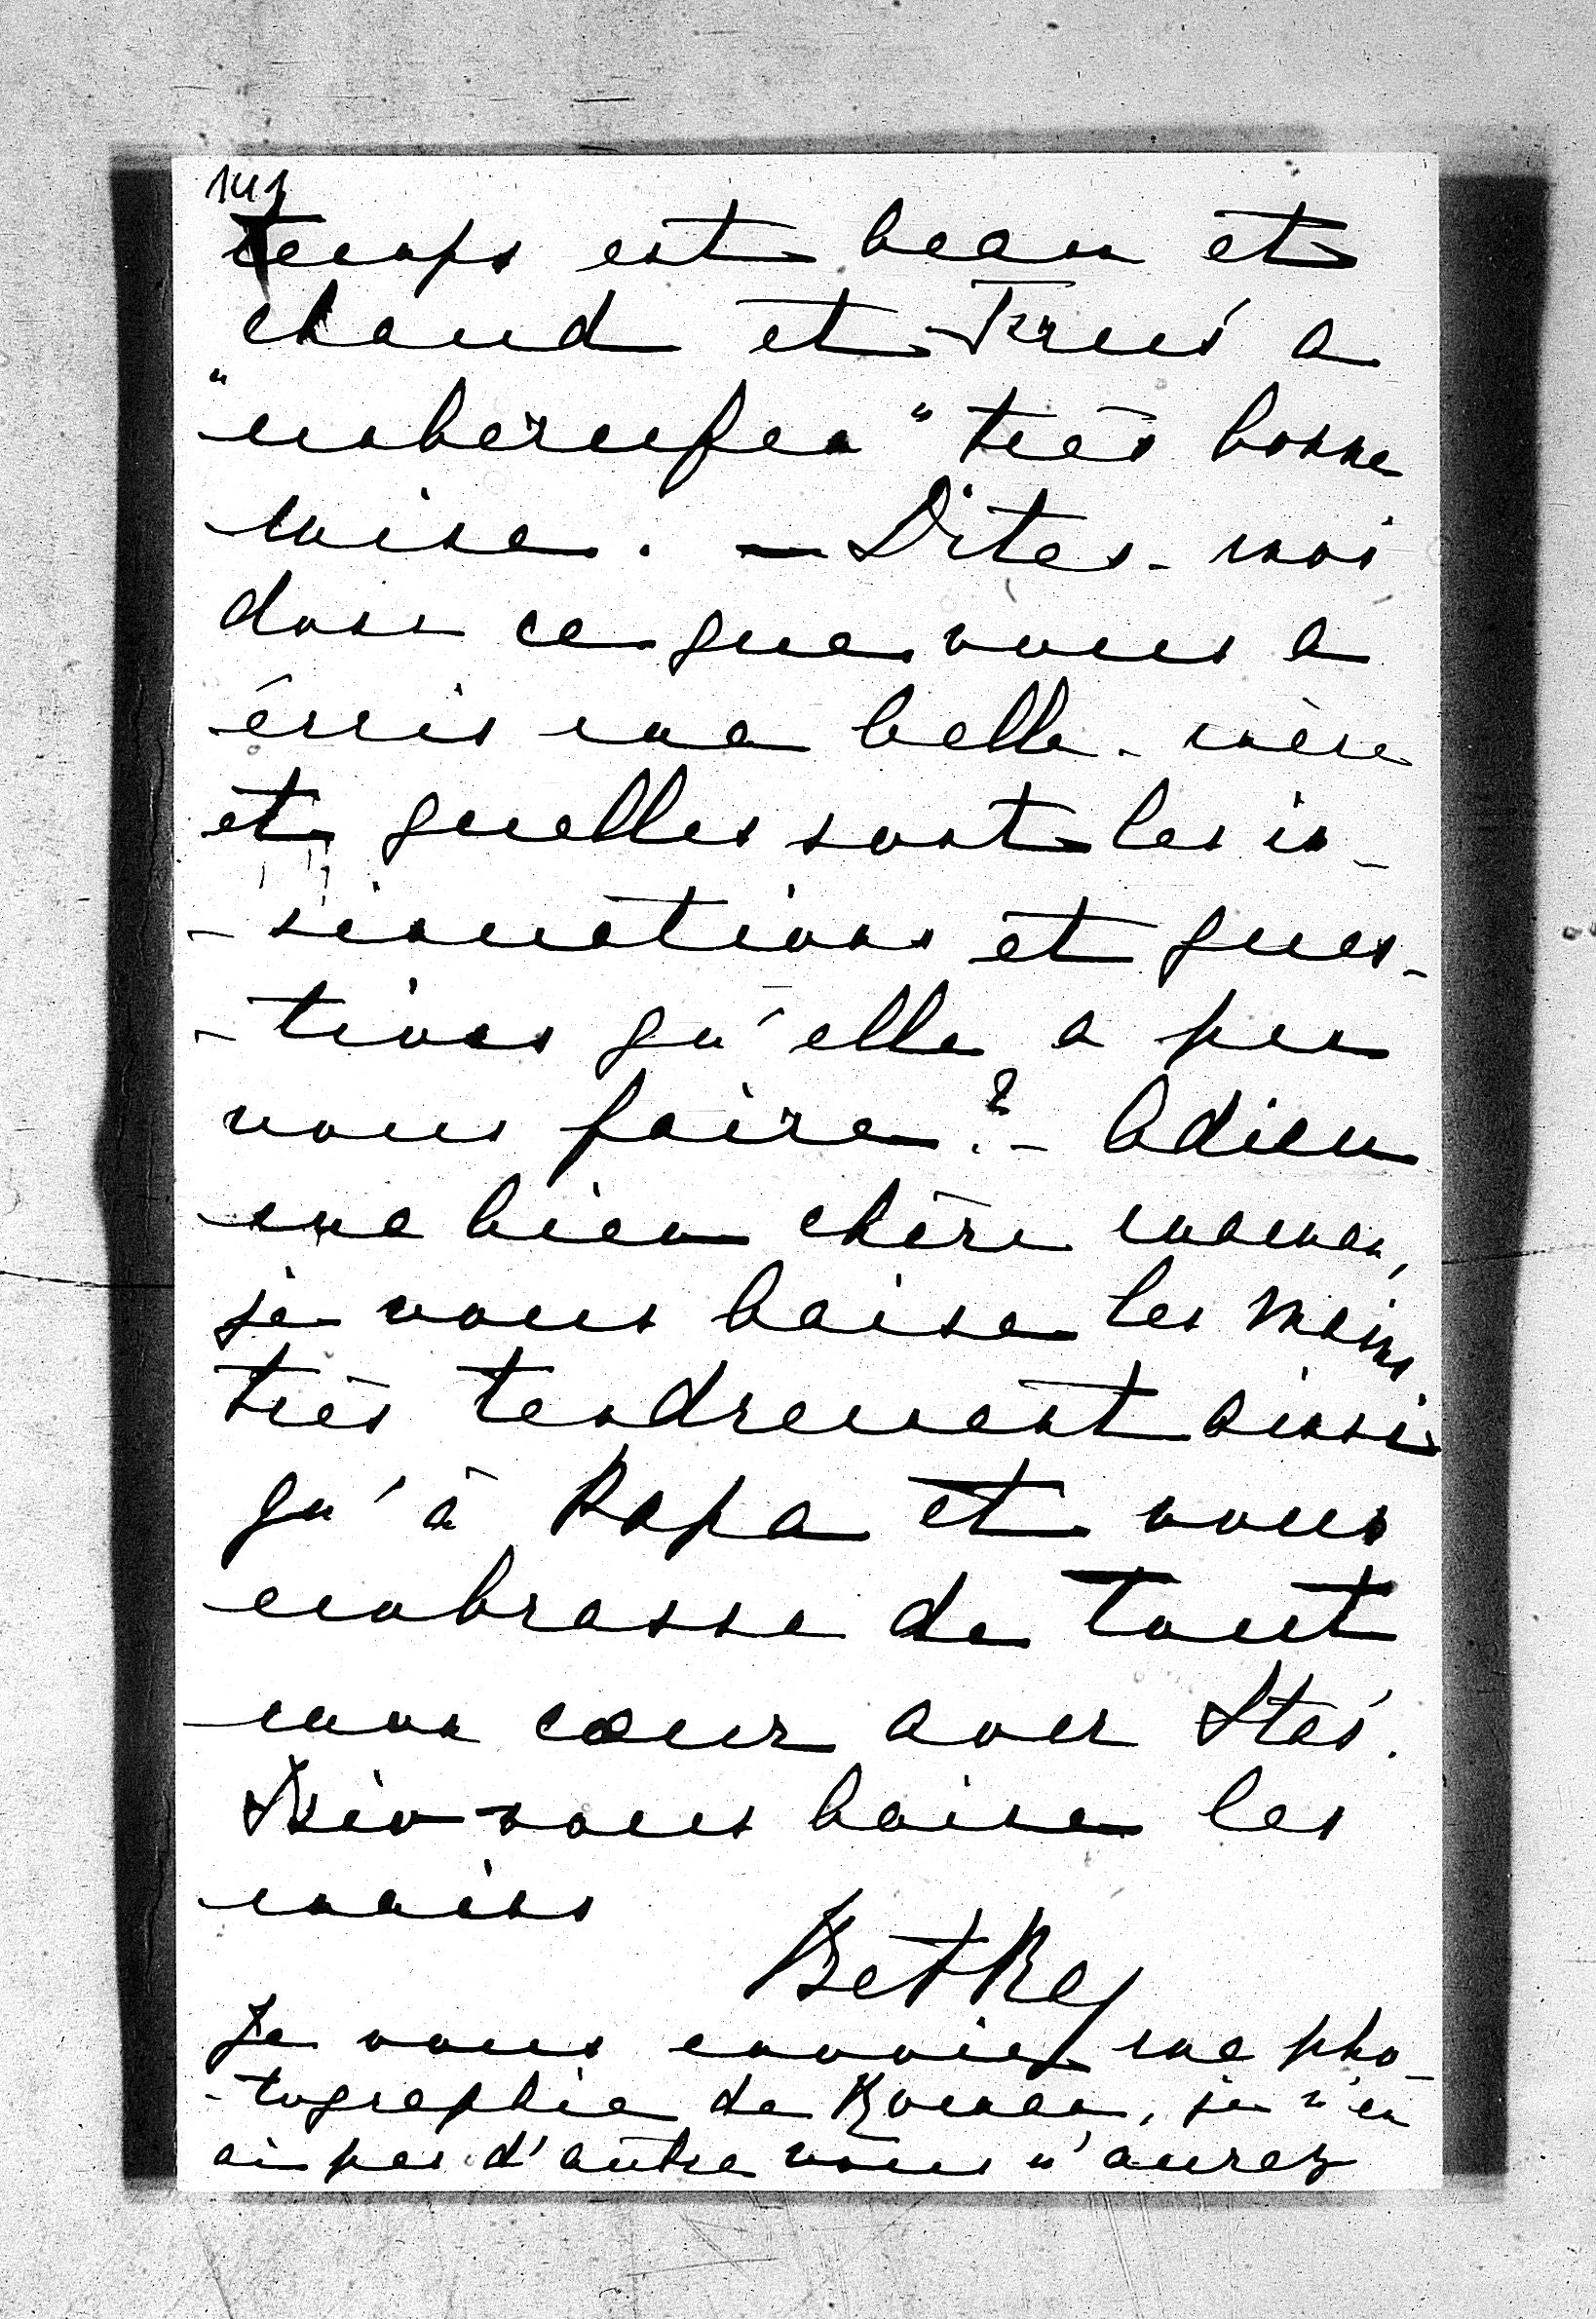 141
temps est beau et
chaud et Trus' a
"naberufen" très bonne
mine. — Dites-moi
donc ce que vous a
écris ma belle-mère
et quelles sont les in-
-sinuations et ques-
-tions qu'elle a pu
vous faire? — Adieu
ma bien chère maman,
je vous baise les mains
très tendrement ainsi
qu'à Papa et vous
embrasse de tout
mon cœur avec Stas'.
vous baise les
mains
Betka
Je vous envoie ma pho-
-tographie de Roman, je n'en
ai pas d'autre vous n'aurez